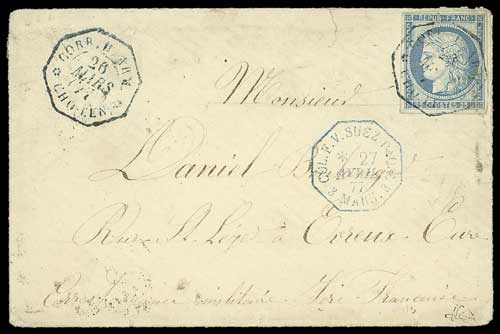 CORR. D. ARM.
26
MARS
77
CHO-LEN
REPUB. FRANC.
Monsieur
COL. F. V. SUEZ PAQ. FR.
27
AVRIL
77
3 MARS. 3
Daniel
Rue St Léger à Evreux Eure
Correspondance militaire Voie Française